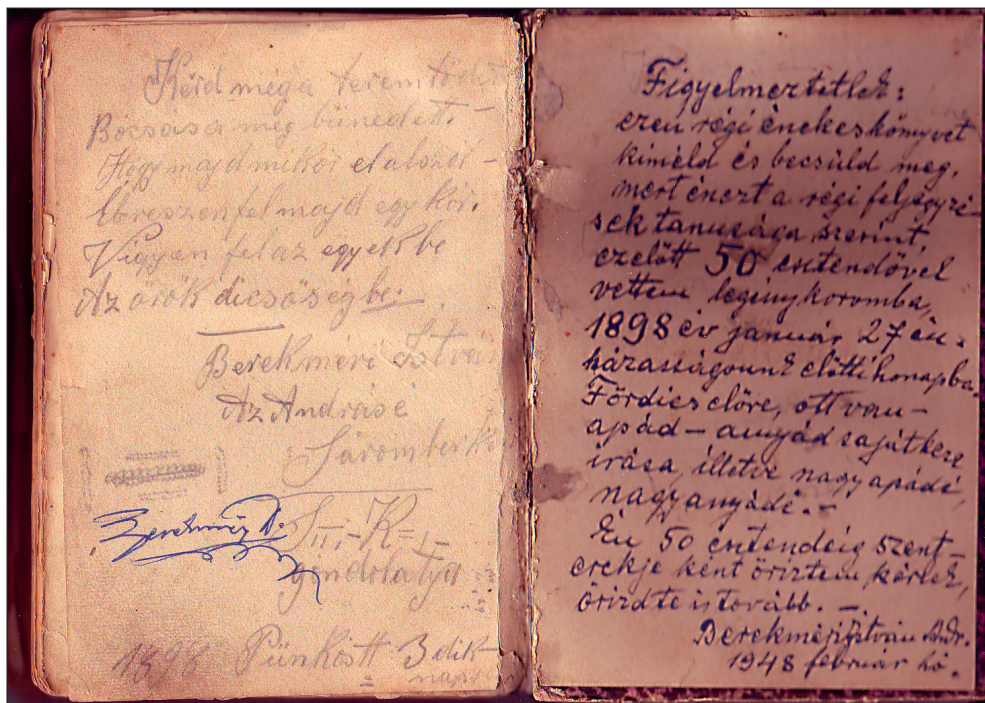 Kérd még a teremtődet
Bocsássa meg bűnedet.
Hogy majd mikor elalszol –
Ébreszen fel majd egykor.
Vigyen fel az egyekbe
Az örök dicsőségbe: –
Berekméri István
Az Andrásé
Sáromberke
gondolatja
1898 Pünköstt 3 dik
napján
Figyelmeztetlek:
ezen régi énekeskönyvet
kiméld és becsüld meg,
mert én ezt a régi feljegyzé-
sek tanusága szerint,
ezelőtt 50 esztendővel
vettem legénykoromba,
1898 év január 27 én.
házasságunk előtti honapba.
Fördics előre, ott van –
apád – anyád sajátkeze
irása, illetve nagyapádé,
nagyanyádé. –
Én 50 esztendeig szent-
erekje ként őriztem, kérlek,
őrizd te is tovább. –
Berekméri István Andr.
1948 február hó.